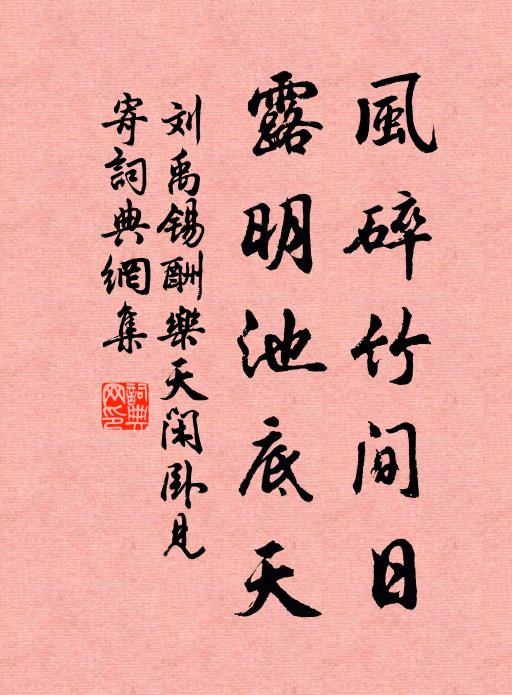 風碎竹间日
露明池底天
刘禹锡酬樂天闲卧見
寄詞典網集
詞典
网印